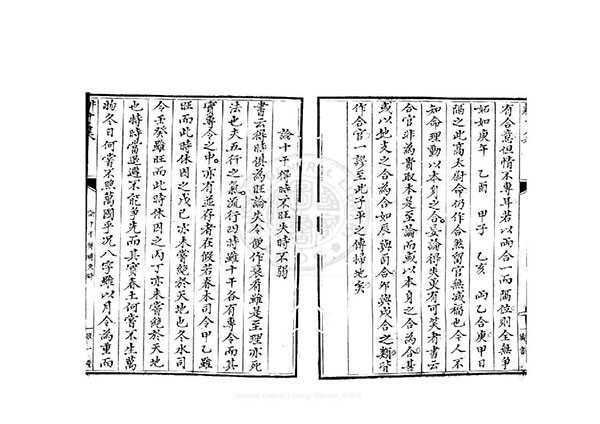 有合意但情不專耳若以兩合一而隔位則全無爭
妬如庚午 乙酉 甲子 乙亥 兩乙合庚甲日
隔之此高太尉命仍作合煞留官無減福也今人不
知命理動以本身之合妄論得失更有可笑者書云
合官非為貴取本是至論而或以本身之合為合甚
或以地支之合為合如辰與酉合卯與戌合之類皆
作合官一謬至此子平之傳掃地矣
論十干得時不旺失時不弱
書云得時俱為旺論失令便作衰看雖是至理亦死
法也夫五行之氣流行四時雖十干各有專令而其
實專令之中亦有並存者在假若春木司令甲乙雖
旺而此時休囚之戊己亦未嘗絕於天地也冬水司
令壬癸雖旺而此時休囚之丙丁亦未嘗絕於天地
也特時當退避不能爭先而其實春土何嘗不生萬
物冬日何嘗不照萬國乎況八字雖以月令為重而